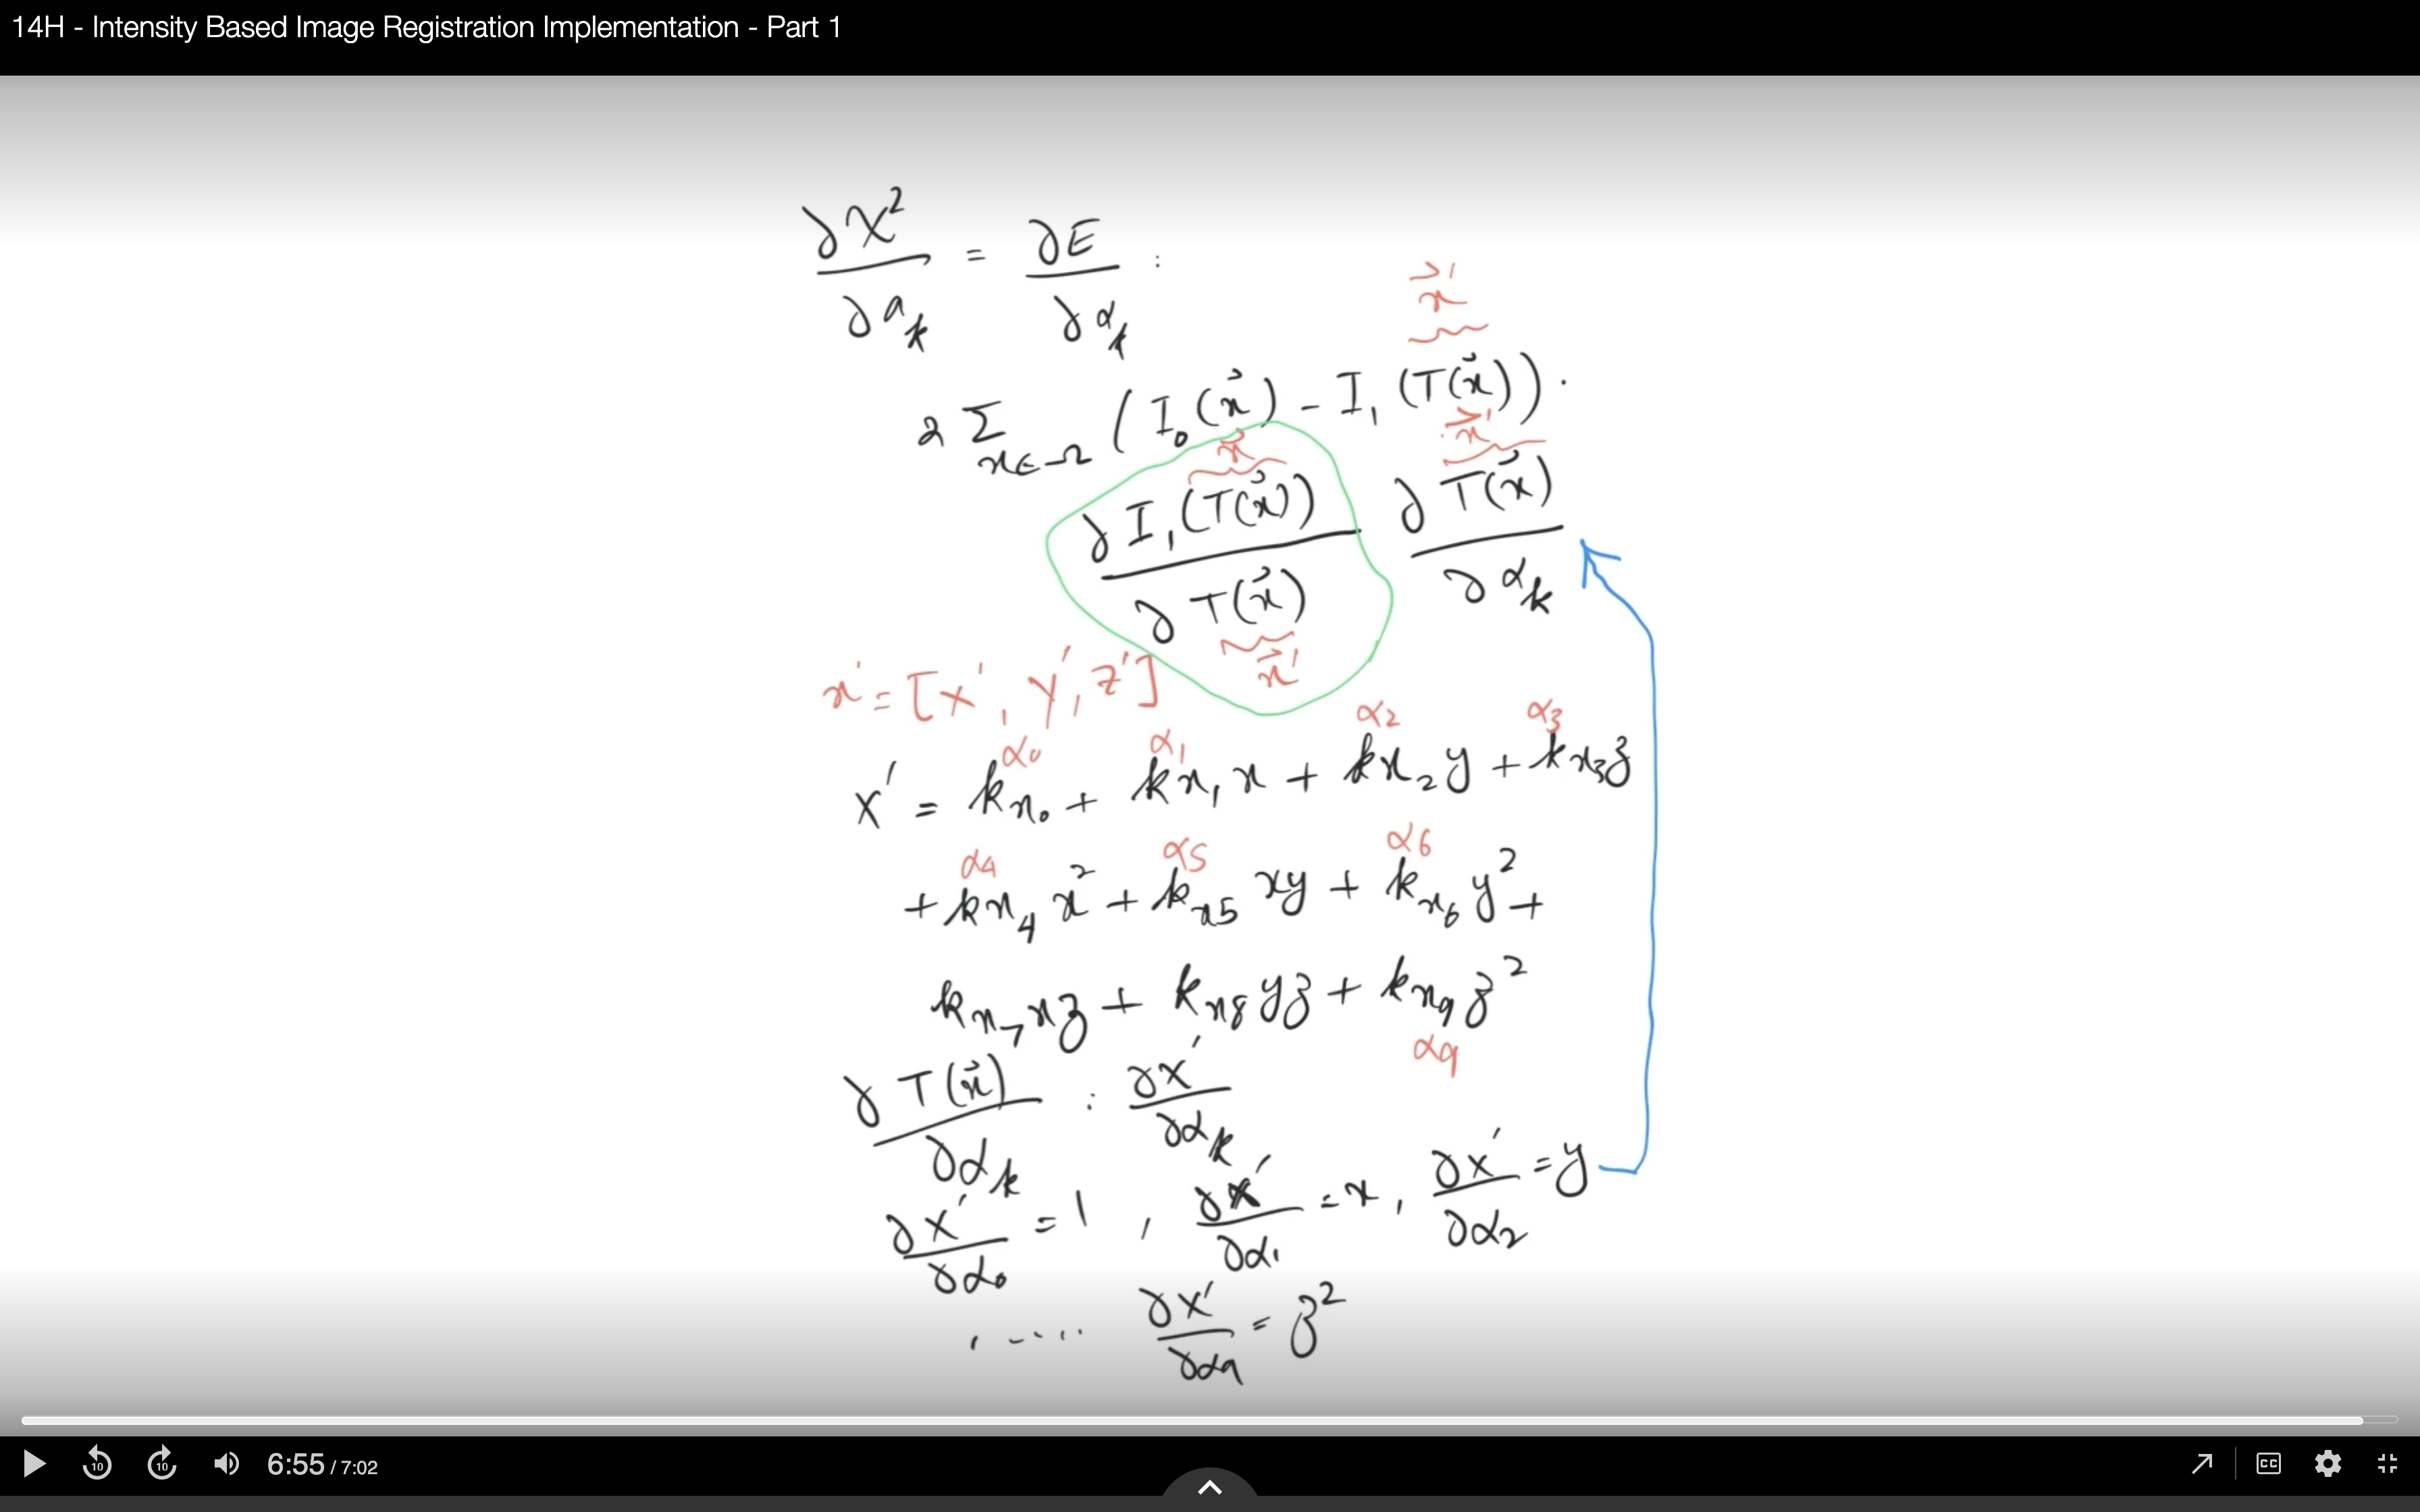 14H - Intensity Based Image Registration Implementation - Part 1
∂χ²/∂a_k = ∂E/∂α_k :
x⃗'
2 Σ_{x∈Ω} (I₀(x⃗) - I₁(T(x⃗))) ·
x⃗ x⃗'
∂I₁(T(x⃗))/∂T(x⃗) ∂T(x⃗)/∂α_k
x⃗'
x' = [x', y', z']
α₀ α₁ α₂ α₃
x' = k_{x₀} + k_{x₁} x + k_{x₂} y + k_{x₃} z
α₄ α₅ α₆
+ k_{x₄} x² + k_{x₅} xy + k_{x₆} y² +
k_{x₇} xz + k_{x₈} yz + k_{x₉} z²
α₉
∂T(x⃗)/∂α_k : ∂x'/∂α_k
∂x'/∂α₀ = 1 , ∂x'/∂α₁ = x , ∂x'/∂α₂ = y
, ..... ∂x'/∂α₉ = z²
10 10 6:55 / 7:02 CC